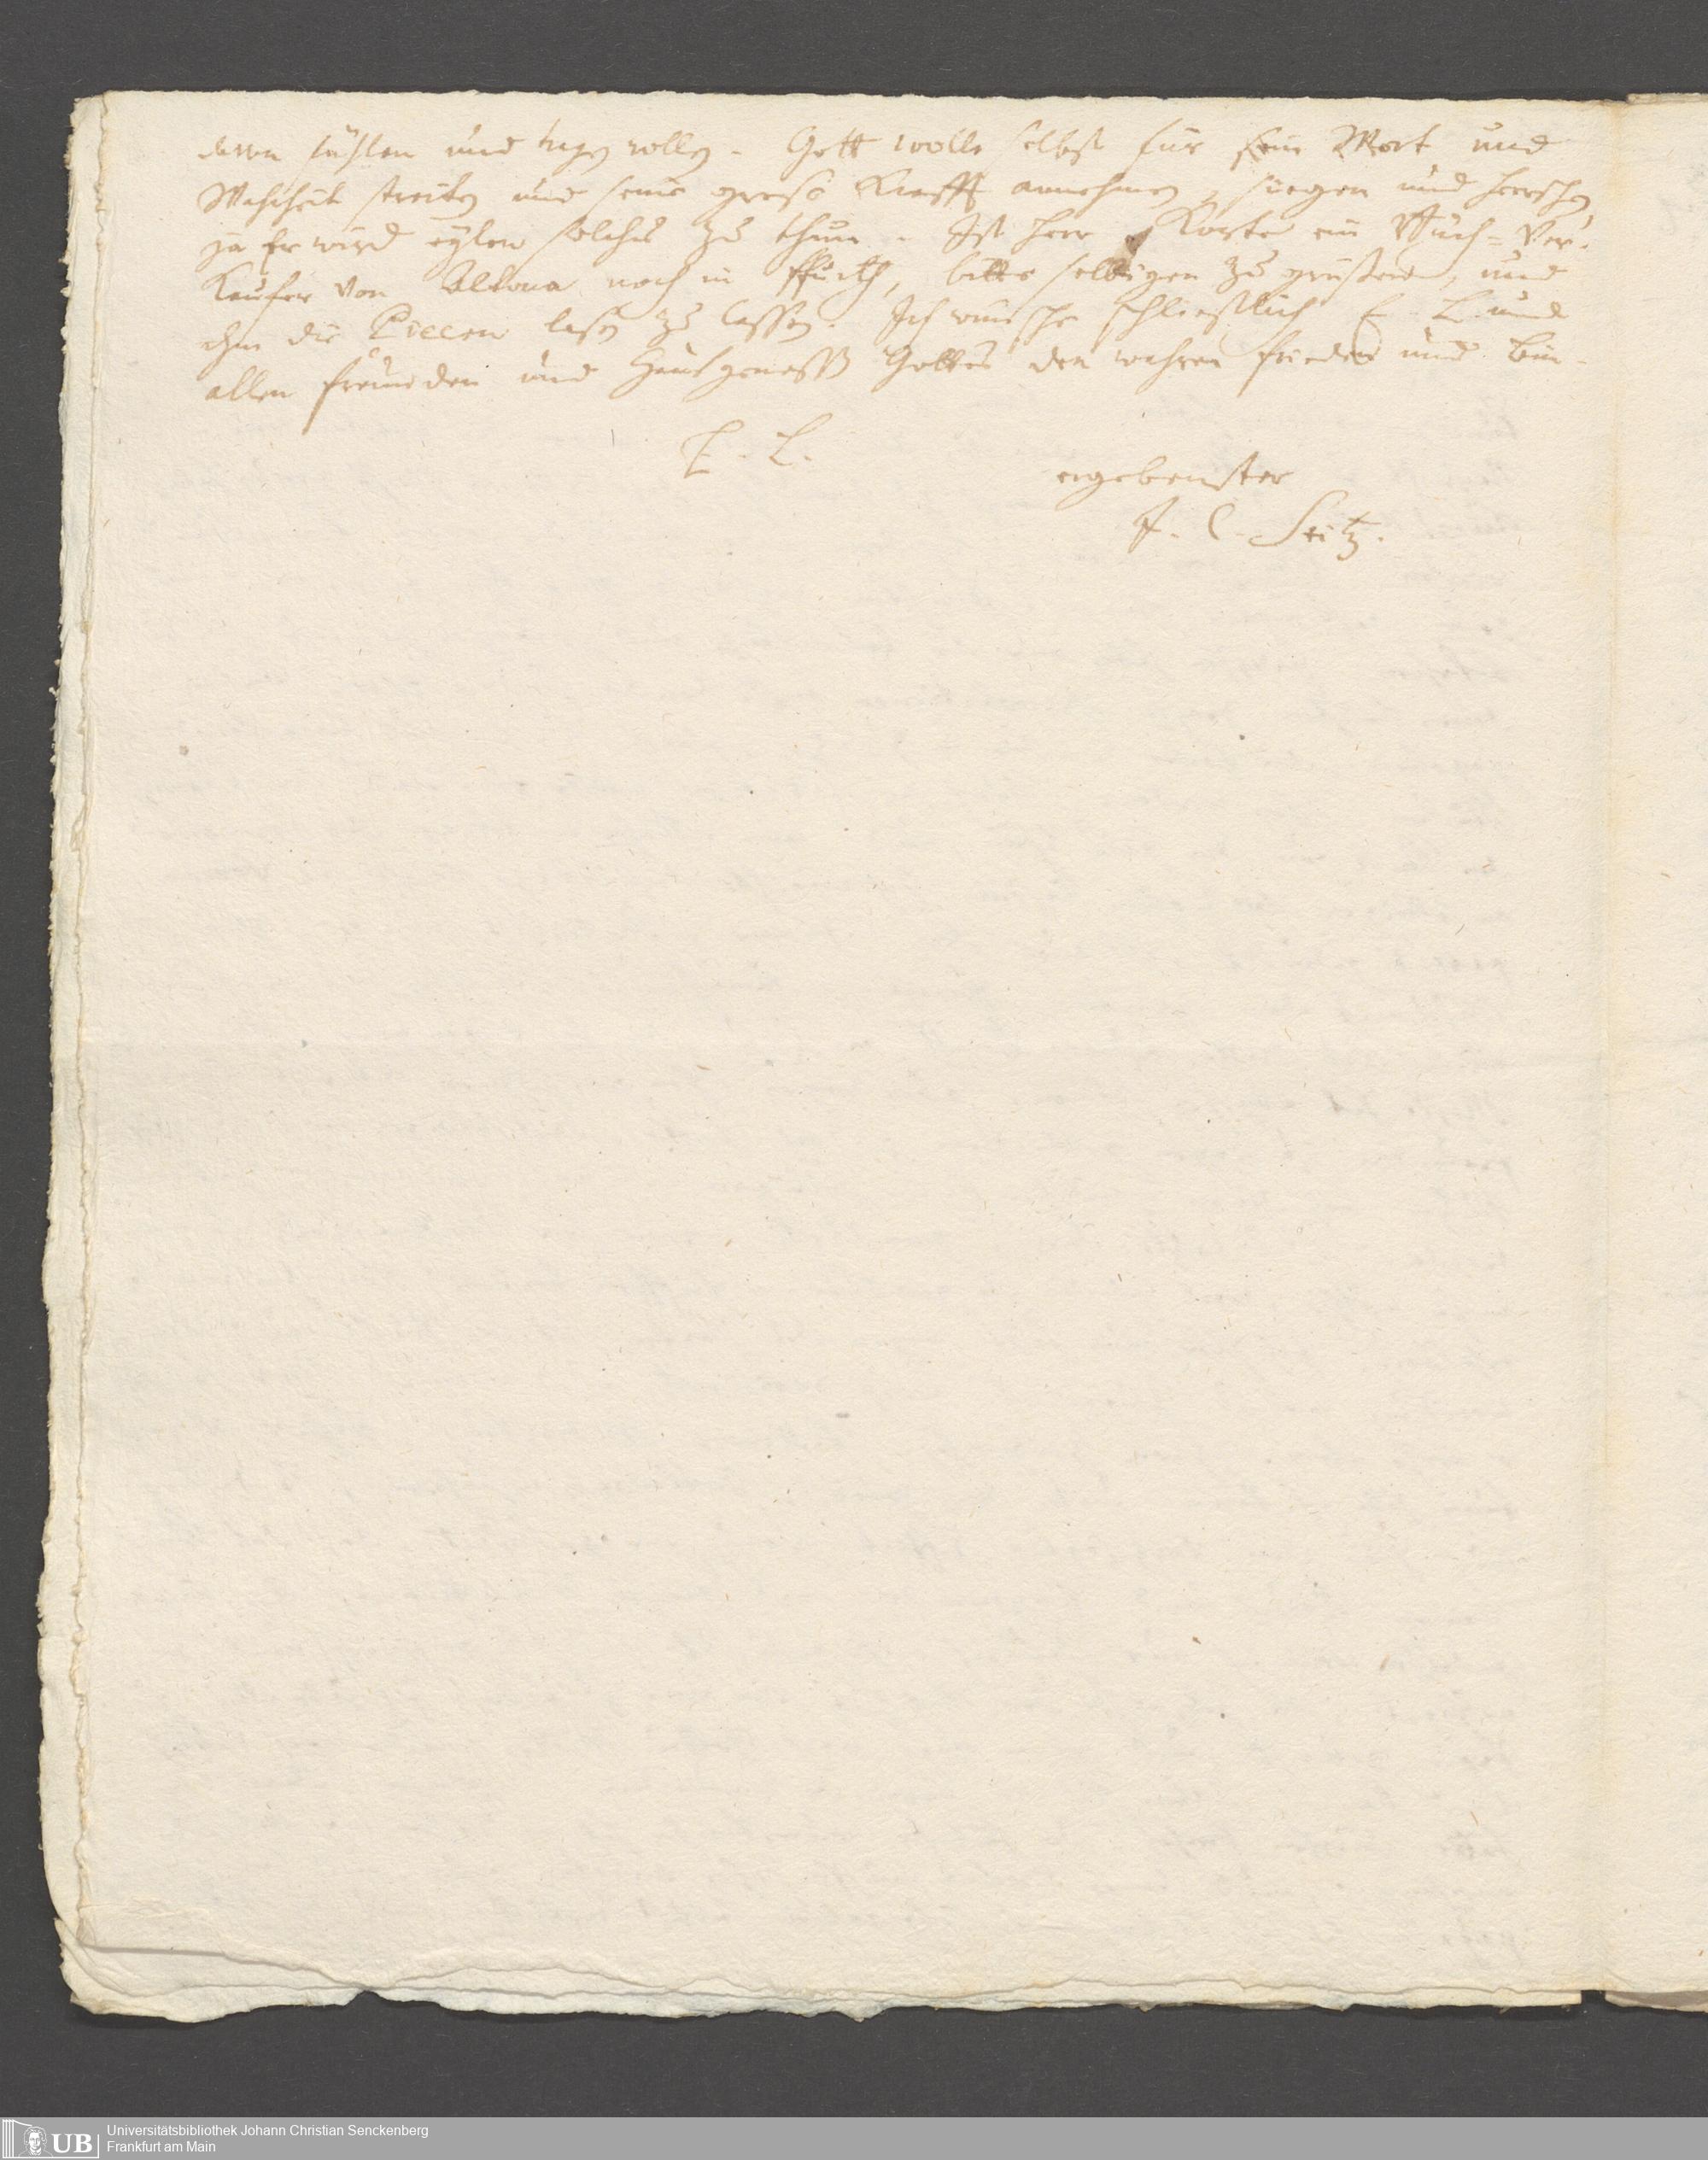 davon fühlen und tragen wollen. Gott wolle selbst für sein Wort und
Wahrheit streiten und seine große Krafft annehmen, siegen und herrschen,
ja Er wird eylen solches zu thun. Ist Herr Korte ein Buch-Ver-
kaufer von Altona noch in Ffurth, bitte selbigen zu grüßen, und
ihm die Piecen lesen zu lassen. Ich wünsche schließlich E. L. und
allen freunden und Haußgenoßen Gottes den wahren frieden und bin
E. L.
ergebenster
J. C. Seitz.
UB
Universitätsbibliothek Johann Christian Senckenberg
Frankfurt am Main